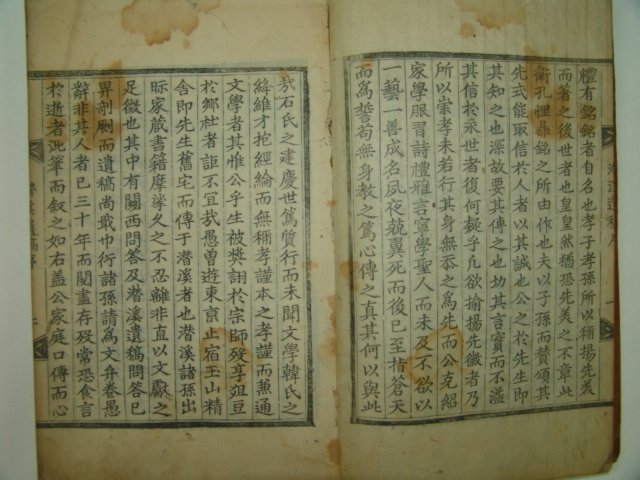 禮有銘銘者自名也孝子孝孫所以稱揚先美
而著之後世者也皇皇然猶恐先美之不章此
衛孔悝鼎銘之所由作也夫以子孫而贊頌其
先式能取信於人者以其誠也公之於先生即
其知之也深故要其傳之也切其言實而不溢
其信於永世者復何疑乎凡欲揄揚先徽者乃
所以崇孝未若行其身無忝之為先而公克紹
家學服習詩禮雅言寧學聖人而未及不欲以
一藝一善成名夙夜兢翼死而後已至指蒼天
而為誓苟無身教之篤心傳之真其何以與此
哉石氏之建慶世篤質行而未聞文學韓氏之
絳維才抱經綸而無稱孝謹本之孝謹而兼通
文學者其惟公乎生被奬詡於宗師歿享俎豆
於鄉社者詎不宜哉愚曽遊東京止宿玉山精
舍即先生舊宅而傳于潜溪者也潜溪諸孫出
眎家藏書籍摩挲久之不忍離非直以文獻之
足徴也其中有關西問答及潜溪遺稿問答已
畀剞劂而遺稿尚戢巾衍諸孫請為文弁卷愚
辭非其人者已三十年而閱盡存歿常恐食言
於逝者泚筆而叙之如右盖公家庭口傳而心
潜溪遺稿序
二